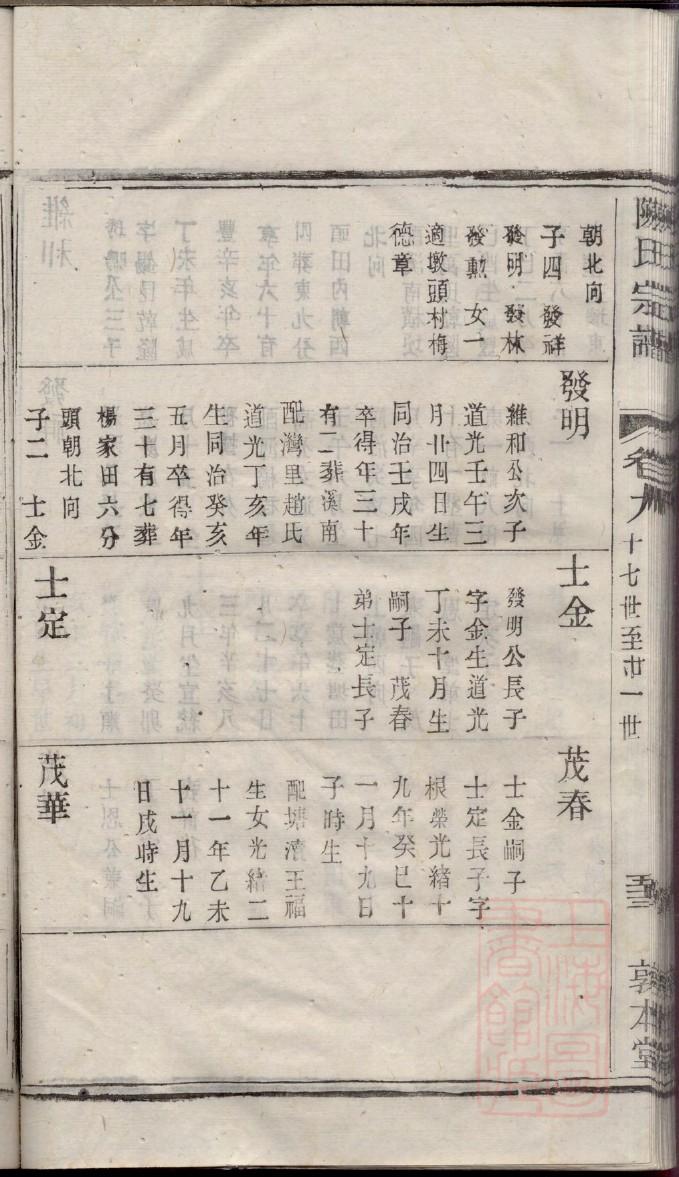 陳氏宗譜
卷九
十七世至廿一世
敦本堂
朝北向
子四 發祥
發明 發林
發勳 女一
適墩頭村梅
德章
發明
維和公次子
道光壬午三
月廿四日生
同治壬戌年
卒得年三十
有二葬溪南
配灣里趙氏
道光丁亥年
生同治癸亥
五月卒得年
三十有七葬
楊家田六分
頭朝北向
子二 士金
士金
發明公長子
字金生道光
丁未十月生
嗣子 茂春
弟士定長子
士定
茂春
士金嗣子
士定長子字
根榮光緒十
九年癸巳十
一月十九日
子時生
配塘濆王福
生女光緒二
十一年乙未
十一月十九
日戌時生
茂華